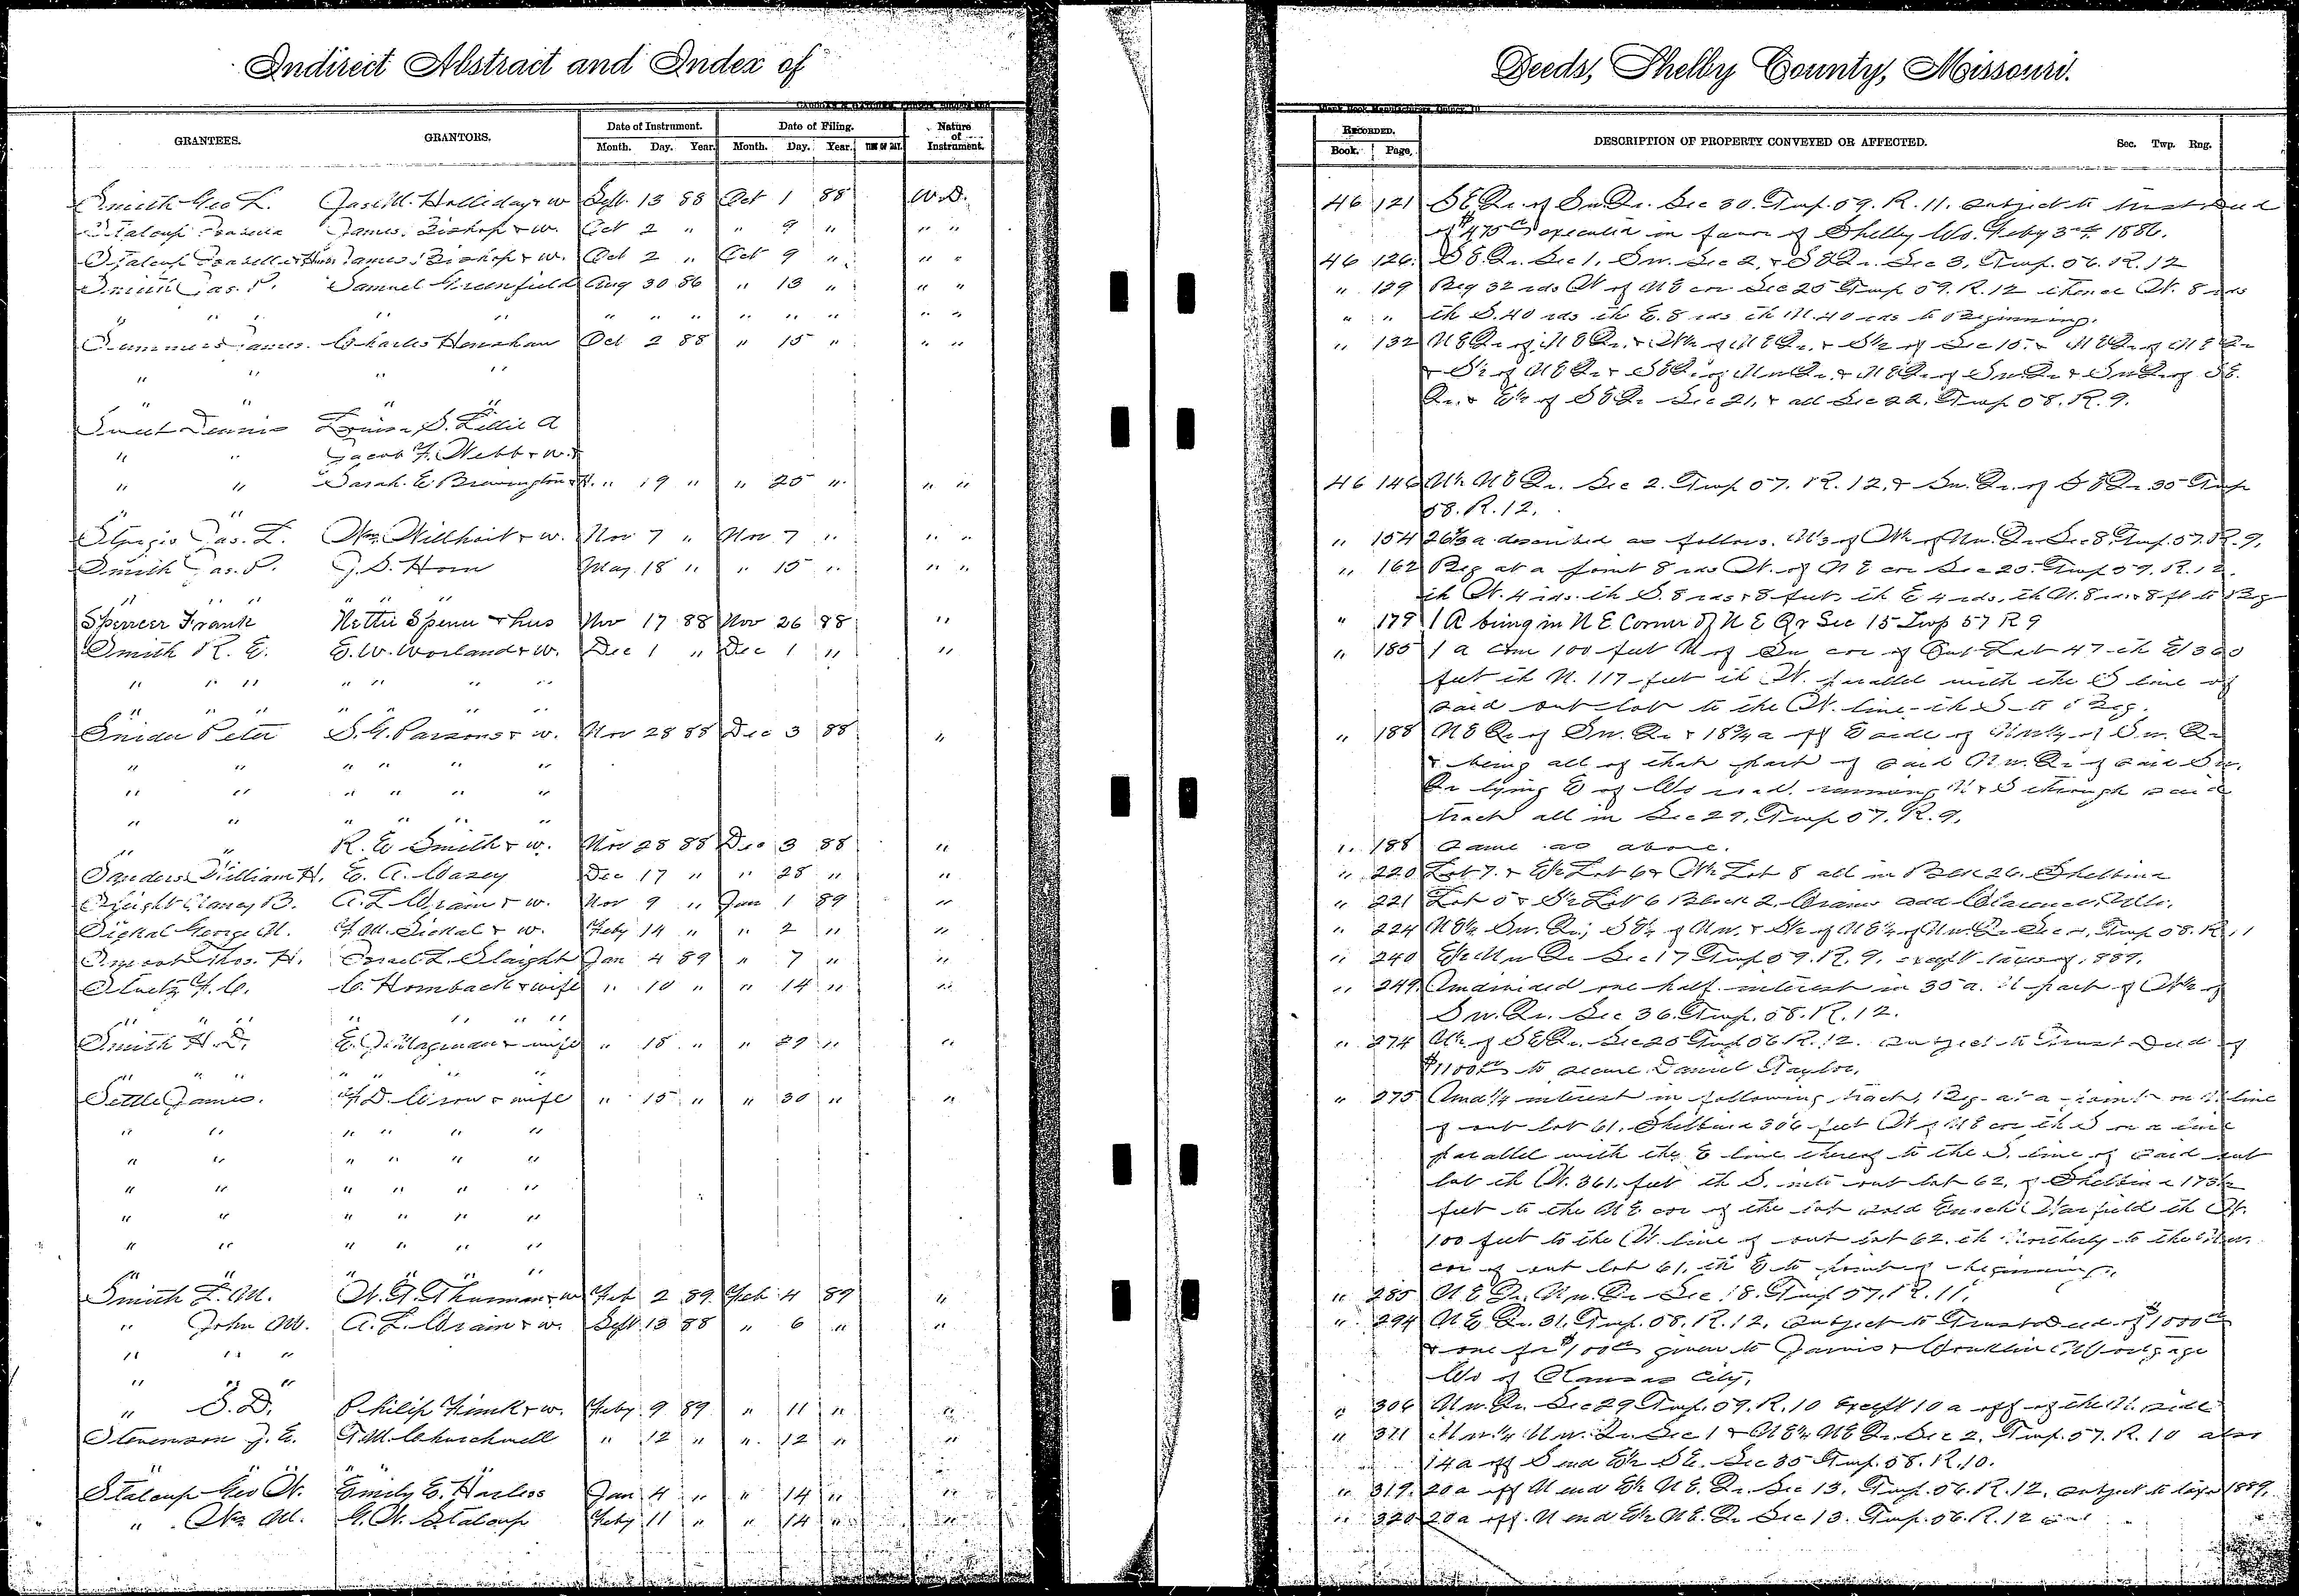 Indirect Abstract and Index of
Deeds, Shelby County, Missouri.
GRANTEES. GRANTORS. Date of Instrument. Date of Filing. Nature of Instrument.
Month. Day. Year. Month. Day. Year. TIME OF DAY.
RECORDED. DESCRIPTION OF PROPERTY CONVEYED OR AFFECTED. Sec. Twp. Rng.
Book. Page.
Smith Geo L. Jas. M. Holliday + w Sept. 13 88 Oct 1 88 W.D. 46 121 SE Qr. of Sw. Qr. Sec 30. Twp. 59. R. 11. subject to trust deed
Stalcup James Bishop + w. Oct 2 " " 9 " " " of $475 executed in favor of Shelby Co. Feby 3rd 1886.
Stalcup James Bishop + w. Oct 2 " Oct 9 " " " 46 126. Sec 1, Sw. Sec 2, + SE Qr. Sec 3, Twp. 56. R. 12
Smith Jas. P. Samuel Greenfield Aug 30 86 " 13 " " " " 129 Beg 32 rds W of NE cor Sec 25 Twp 59. R. 12 thence W. 8 rds
" " " " " " " " " " " " " " " th S. 40 rds th E. 8 rds th N. 40 rds to Beginning.
Summers James. Charles Henshaw Oct 2 88 " 15 " " " " 132 NE Qr of NE Qr. + W½ of NE Qr. + S½ of Sec 15. + NE Qr of NE Qr
" " " " + S½ of NE Qr + SE Qr of Nw Qr. + NE Qr of Sw Qr + Sw Qr of SE.
" " " " Qr. + E½ of SE Qr Sec 21, + all Sec 22. Twp 58. R. 9.
Sweet Dennis Louisa S. Lillie A
" " Jacob F. Webb + w. +
" " Sarah E Brewington + H. " 19 " " 25 " " " 46 146 N½ NE Qr. Sec 2. Twp 57. R. 12, + Sw. Qr. of SE Qr 35 Twp
" " 58. R. 12.
Jas. L. Wm Willhoit + w. Nov 7 " Nov 7 " " " " 154 26⅔ a described as follows. N⅓ of W½ of Nw. Qr Sec 8. Twp. 57. R. 9.
Smith Jas. P. J. S. Horn May 18 " " 15 " " " " 162 Beg at a point 8 rds W. of NE cor Sec 25. Twp 59. R. 12.
" " " " " th W. 4 rds. th S. 8 rds + 8 feet, th E 4 rds, th N. 8 rds + 8 ft to Beg
Spencer Frank Nettie Spener + hus Nov 17 88 Nov 26 88 " " 179 1 A being in N E Corner Of N E Qr Sec 15 Twp 57 R 9
Smith R. E. E. W. Worland + w. Dec 1 " Dec 1 " " " 185 1 a com 100 feet N of Sw cor of Out Lot 47 th E 360
" " " " " " " feet th N. 117 feet th W. parallel with the S line of
" " " " " " " said out lot to the W. line th S to Beg.
Snider Peter S. G. Parsons + w. Nov 28 88 Dec 3 88 " " 188 NE Qr of Sw. Qr + 18¾ a off E side of Nw ¼ of Sw. Qr
" " " " " " + being all of that part of said Nw. Qr of said Sw.
" " " " " " Qr lying E of Co road running N + S through said
" " " " " " track all in Sec 29, Twp 57. R. 9.
" " R. E Smith + w. Nov 28 88 Dec 3 88 " " 188 same as above.
Sanders William H. E. A. Casey Dec 17 " " 28 " " " 220 Lot 7. + E½ Lot 6 + W½ Lot 8 all in Block 26. Shelbina
Sleight Claney B. A. L. Crain + w. Nov 9 " Jan 1 89 " " 221 Lot 5 + S½ Lot 6 Block 2. Crains add Clarence, Mo.
Sickal George N. M. Sickal + w. Feby 14 " " 2 " " " 224
Smoot Thos. H. Israel L. Slaight Jan 4 89 " 7 " " " 240 E½ Nw Qr Sec 17 Twp 59. R. 9. except taxes of 1889.
C. Hornback + wife " 10 " " 14 " " " 249. Undivided one half interest in 35 a. N part of W½ of
" " " " " " " Sw. Qr. Sec 36. Twp. 58. R. 12.
Smith H. D. + wife " 18 " " 29 " " " 274 N½ of SE Qr. Sec 25 Twp 56 R. 12. subject to Trust Deed of
" " " " " " $1100 to secure Daniel Taylor.
Settle James. F. D. Crow + wife " 15 " " 30 " " " 275 Und ¼ interest in following tract, Beg at a point on N line
" " " " " " of out lot 61. Shelbina 306 feet W of NE cor th S on a line
" " " " " " parallel with the E line thereof to the S. line of said out
" " " " " " lot th W. 361. feet th S. into out lot 62. of Shelbina 175½
" " " " " " feet to the NE cor of the lot sold Enoch Warfield th W.
" " " " " " 100 feet to the W. line of out lot 62. th Northerly to the Nw.
" " " " " " cor of out lot 61, th E to point of beginning.
Smith L. M. W. T. Thurman + w Feb 2 89 Feb 4 89 " " 285 NE Qr. Nw. Qr Sec 18. Twp 57. R. 11.
" John M. A. L. Crain + w. Sept 13 88 " 6 " " " 294 NE Qr. 31. Twp. 58. R. 12. subject to Trust Deed of $1000
" " " + one for $100 given to Jarvis + Conklin Mortgage
" " " Co of Kansas City.
" S. D. Philip Fink + w. Feby 9 89 " 11 " " " 306 Nw. Qr. Sec 29 Twp. 59. R. 10 except 10 a off of the N. side
Stevenson J. E. T. M. Churchwell " 12 " " 12 " " " 311 Nw ¼ Nw. Qr. Sec 1 + NE¼ NE Qr. Sec 2. Twp. 57. R. 10 also
" " " " " 14 a off S end E½ SE. Sec 35 Twp. 58. R. 10.
Stalcup Geo W. Emily E. Harless Jan 4 " " 14 " " " 319. 20 a off N end E½ NE. Qr. Sec 13. Twp. 56. R. 12. subject to taxes 1889.
" Wm M. G. W. Stalcup Feby 11 " " 14 " " " 320 20 a off. N end E½ NE. Qr Sec 13. Twp. 56. R. 12